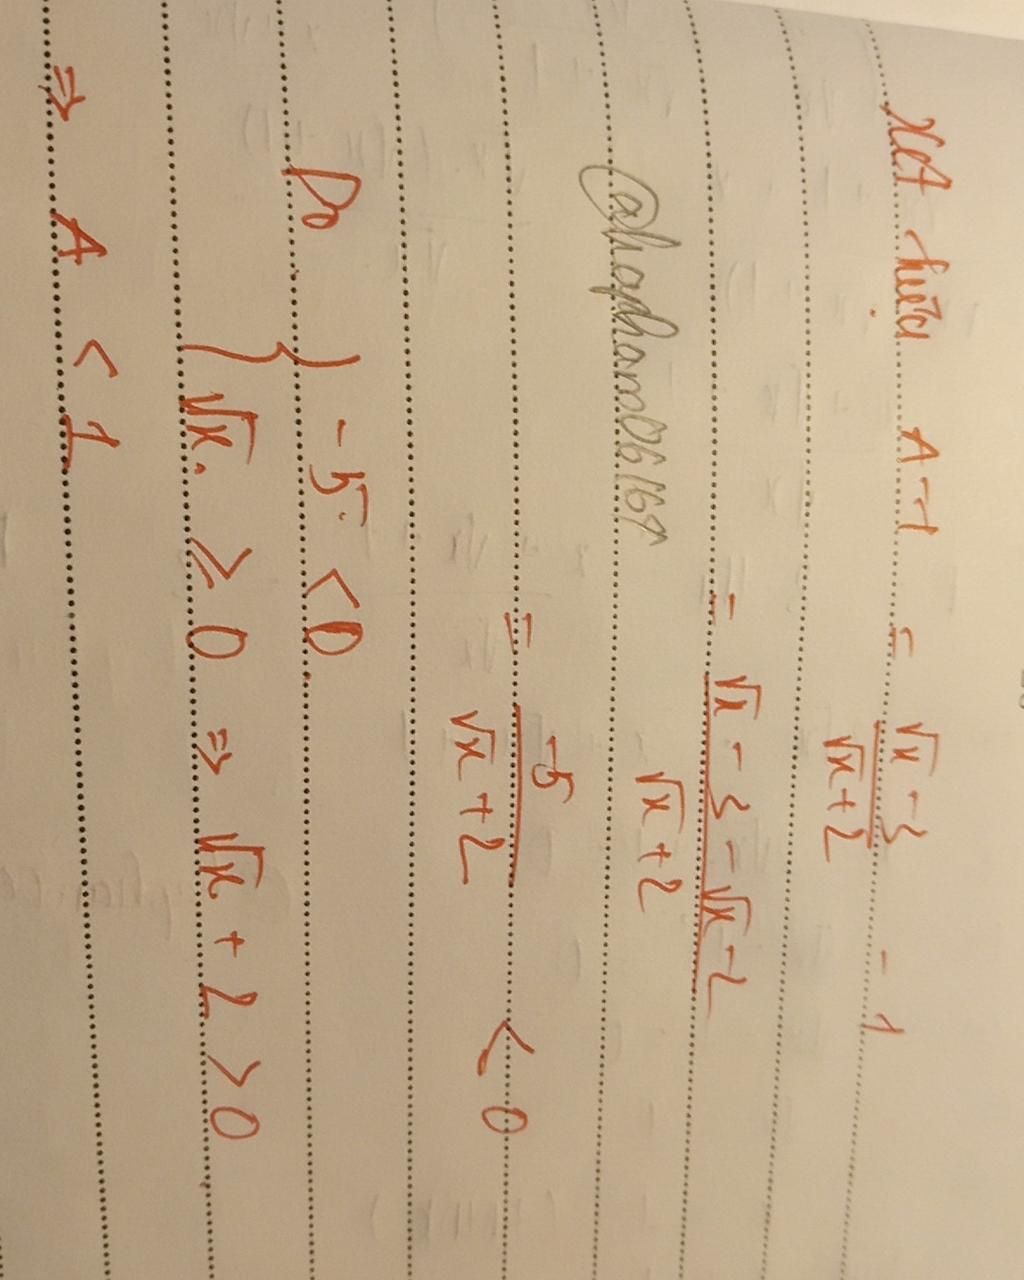 Xét hiệu A - 1 = \frac{\sqrt{x} - 3}{\sqrt{x} + 2} - 1
= \frac{\sqrt{x} - 3 - \sqrt{x} - 2}{\sqrt{x} + 2}
@hapham06164
= \frac{-5}{\sqrt{x} + 2} < 0
Do { -5 < 0
\sqrt{x} ≥ 0 ⇒ \sqrt{x} + 2 > 0
⇒ A < 1